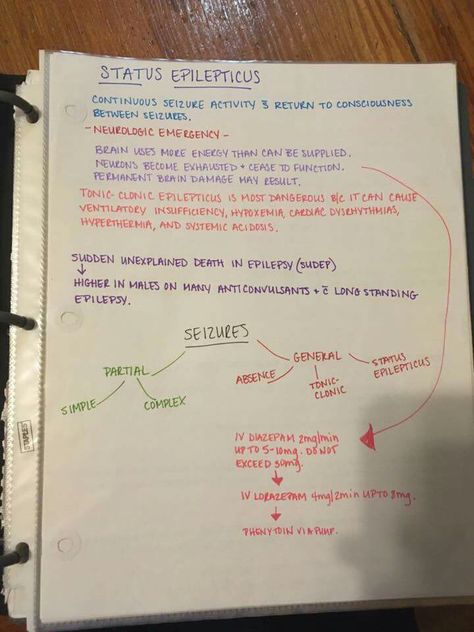 STATUS EPILEPTICUS
CONTINUOUS SEIZURE ACTIVITY s̄ RETURN TO CONSCIOUSNESS
BETWEEN SEIZURES.
- NEUROLOGIC EMERGENCY -
BRAIN USES MORE ENERGY THAN CAN BE SUPPLIED.
NEURONS BECOME EXHAUSTED + CEASE TO FUNCTION.
PERMANENT BRAIN DAMAGE MAY RESULT.
TONIC-CLONIC EPILEPTICUS IS MOST DANGEROUS B/C IT CAN CAUSE
VENTILATORY INSUFFICIENCY, HYPOXEMIA, CARDIAC DYSRHYTHMIAS,
HYPERTHERMIA, AND SYSTEMIC ACIDOSIS.
SUDDEN UNEXPLAINED DEATH IN EPILEPSY (SUDEP)
↓
HIGHER IN MALES ON MANY ANTICONVULSANTS + c̄ LONG STANDING
EPILEPSY.
SEIZURES
PARTIAL
SIMPLE
COMPLEX
GENERAL
ABSENCE
TONIC-
CLONIC
STATUS
EPILEPTICUS
IV DIAZEPAM 2mg/min
UP TO 5-10mg. DO NOT
EXCEED 30mg.
↓
IV LORAZEPAM 4mg/2min UP TO 8mg.
↓
PHENYTOIN VIA PUMP.
STAPLES